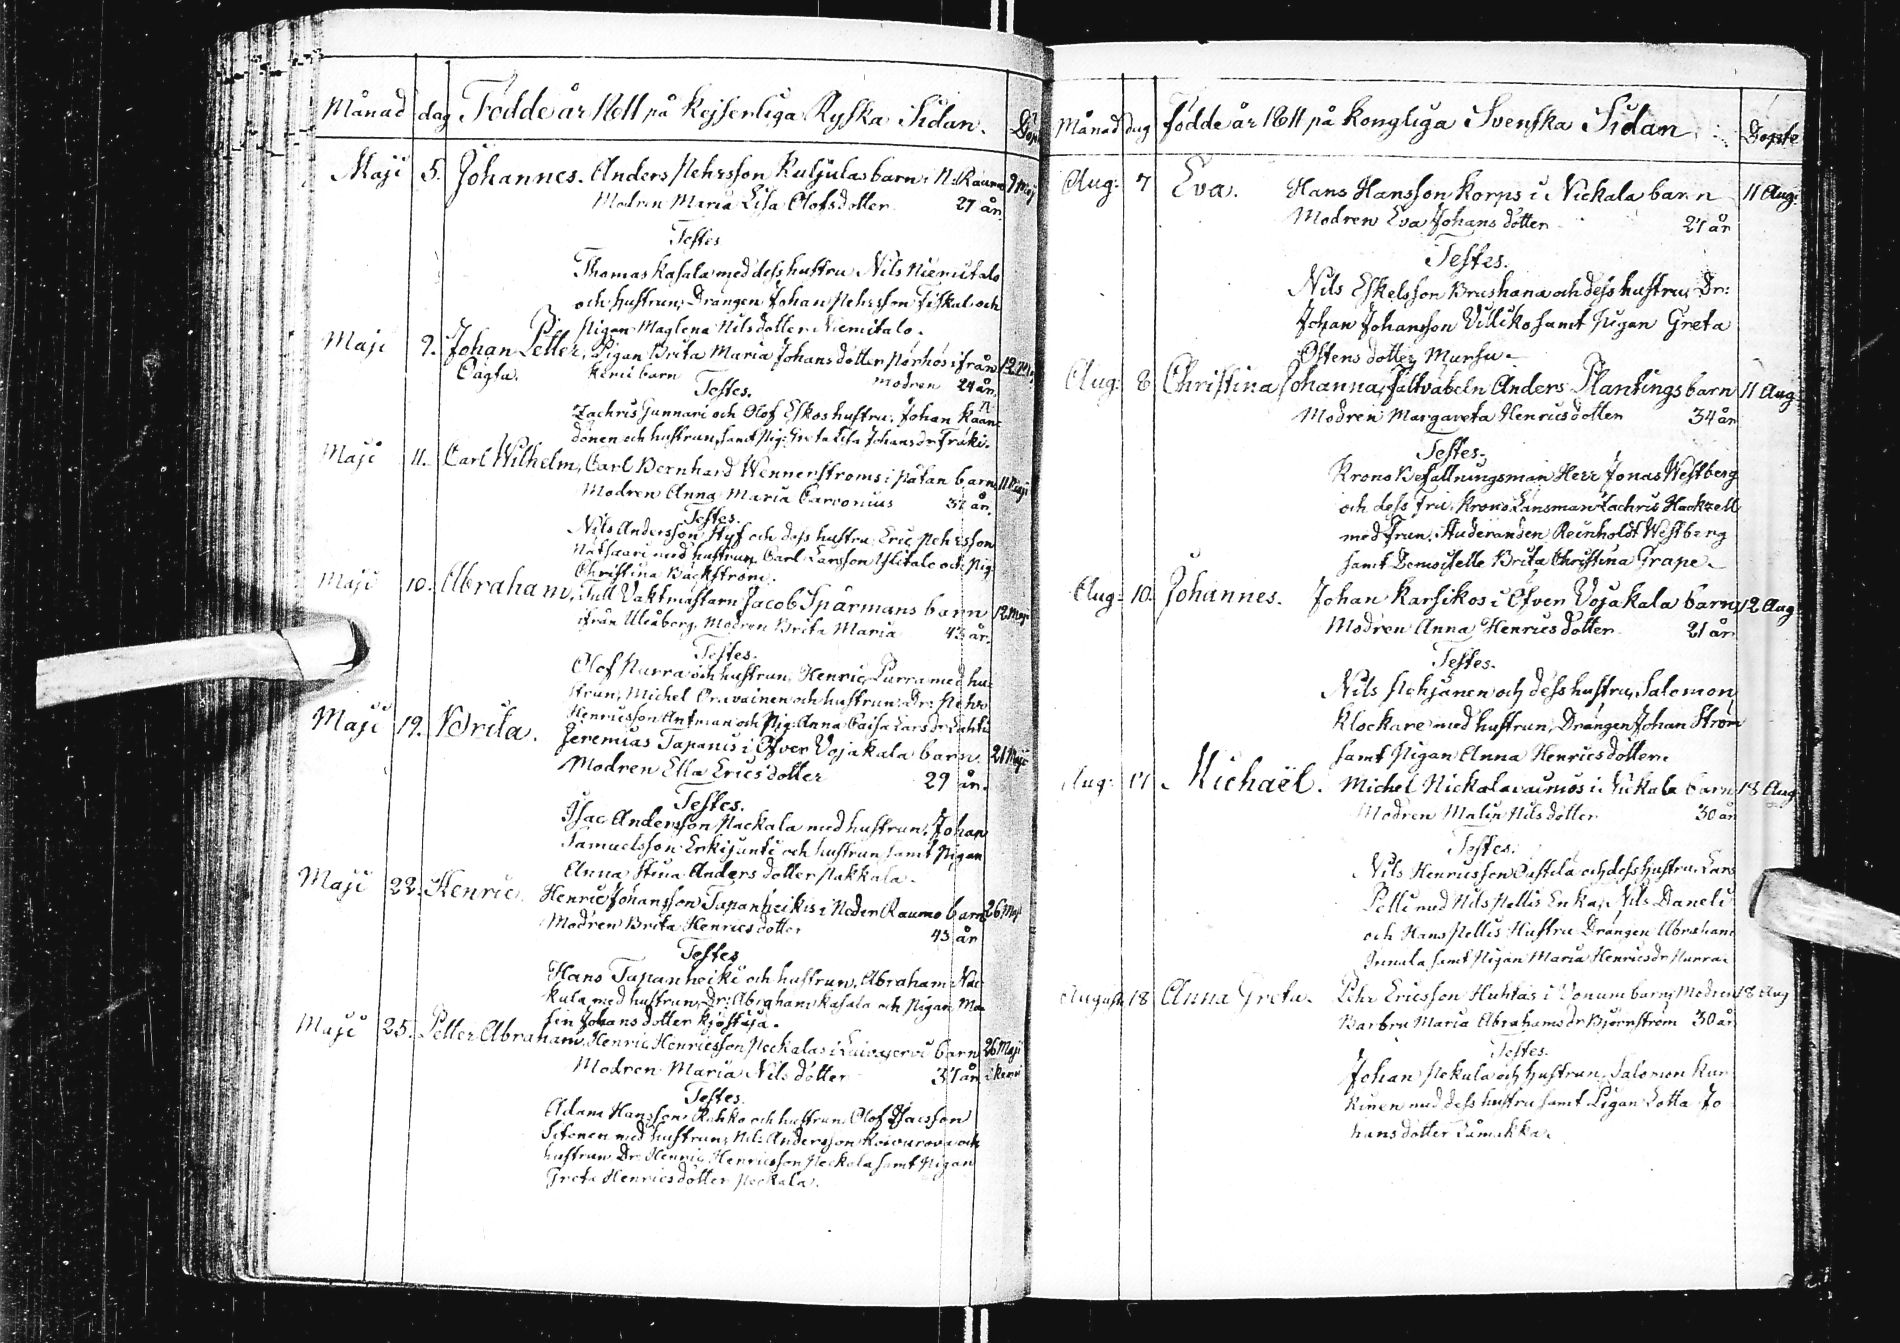 Månad dag Födde år 1811 på Kejserliga Ryska Sidan. Döpte
Maji 5. Johannes. Anders Pehrsson Kuljulas barn i N: Raumo 9 Maji
Modren Maria Lisa Olofsdotter 27 år
Testes
Thomas Kasala med dess hustru Nils Niemitalo
och hustrun, Drängen Johan Pehrsson Fiskal och
Pigan Maglena Nils dotter Niemitalo.
Maji 9. Johan Petter, Pigan Brita Maria Johans dotter ifrån 12 Maji
Oägta. Kemi barn modren 24 år.
Testes.
Zachris Gunnari och Olof Eskos hustru. Johan Kaan-
donen och hustrun, samt Pig: Greta Lisa Johans dr
Maji 11. Carl Wilhelm, Carl Bernhard Wennerströms i barn 11 Maji
Modren Anna Maria Carvonius år.
Testes.
Nils Andersson Hyf och dess hustru, Eric Pehrsson
med hustrun, Carl Larsson Ylitalo och Pig:
Christina Bäckström.
Maji 10. Abraham, Tull Vaktmästarn Jacob Sparmans barn 12 Maji
ifrån Uleåborg. Modren Brita Maria 43 år.
Testes.
Olof Purra och hustrun, Henric Purra med hu-
strun, Michel Oravainen och hustrun, Dr: Pehr
Henricsson Antman och Pig: Anna Caisa Lars dr
Maji 19. Brita. Jeremias Tapanis i Öfver Vojakala barn. 21 Maji
Modren Ella Erics dotter 29 år.
Testes.
Isac Andersson Nackala med hustrun, Johan
Samuelsson Erkijunti och hustrun samt Pigan
Anna Stina Anders dotter Nakkala.
Maji 22. Henric. Henric Johansson Tapanheikis i Neder Raumo barn 26 Maj
Modren Brita Henrics dotter 43 år
Testes
Hans Tapanheiki och hustrun, Abraham
med hustrun, Dr: Abraham Kasala och Pigan Ma-
lin Johans dotter
Maji 25. Petter Abraham, Henric Henricsson Peckalas i barn 26 Maji
Modren Maria Nils dotter 37 år i Kemi
Testes.
Adam Hansson och hustrun, Olof Isacsson
med hustrun, Nils Andersson Koivurova och
hustrun Dr: Henric Henricsson Peckala samt Pigan
Greta Henrics dotter Peckala.
Månad dag Födde år 1811 på Kongliga Svenska Sidan. Döpte
Aug: 7 Eva. Hans Hansson Korps i Nickala barn 11 Aug:
Modren Eva Johans dotter 27 år
Testes.
Nils Eskelsson Brushana och dess hustru, Dr:
Johan Johansson samt Pigan Greta
Östens dotter Mursu.
Aug: 8 Christina Johanna, Fältväbeln Anders Plantings barn 11 Aug:
Modren Margareta Henricsdotter 34 år
Testes.
Krono Befallningsman Herr Jonas Westberg
och dess Fru, Krono Länsman Zachris Hackzell
med Frun, Studeranden Reinholdt Westberg
samt Demoiselle Brita Christina Grape.
Aug: 10. Johannes. Johan Karsikos i Öfver Vojakala barn 12 Aug
Modren Anna Henrics dotter 21 år
Testes.
Nils och dess hustru, Salomon
Klockare med hustrun, Drängen Johan Ström
samt Pigan Anna Henrics dotter.
Aug: 17 Michaël. Michel i Nickala barn 18 Aug
Modren Malin Nils dotter 30 år
Testes.
Nils Henricsson och dess hustru. Lars
Pelli med Nils Pellis Enka, Nils Daneli
och Hans Pellis Hustru Drängen Abraham
samt Pigan Maria Henrics dr
August: 18 Anna Greta. Pehr Ericsson Huhtas i Vonum barn, Modren 18 Aug
Barbru Maria Abrahams dr Björnström 30 år
Testes.
Johan Pekula och hustrun, Salomon Kur-
kinen med dess hustru samt Pigan Lotta Jo-
hans dotter